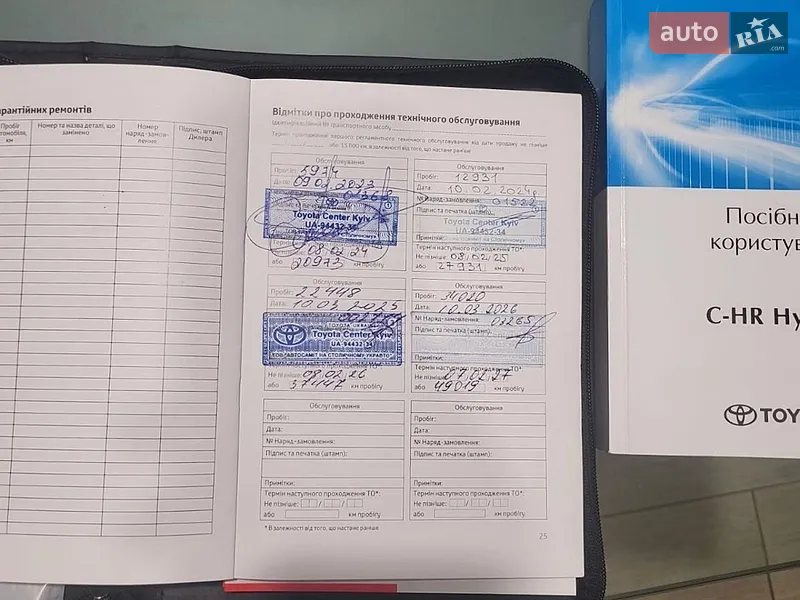 auto RIA .com
арантійних ремонтів
Пробіг
томобіля,
км
Номер та назва деталі, що
замінено
Номер
наряд-замов-
лення
Підпис, штамп
Дилера
Відмітки про проходження технічного обслуговування
або 15 000 км, в залежності від того, що настане раніше
Обслуговування
Пробіг: 5974
Дата: 09.02.2023
Toyota Center Kyiv
UA-94432-34
08.02.24
або 20973 км пробігу
Обслуговування
Пробіг: 12931
Дата: 10.02.2024
№ Наряд-замовлення: 01522
Підпис та печатка (штамп):
Toyota Center Kyiv
UA-94432-34
Примітки:
Термін наступного проходження ТО*:
Не пізніше: 08.02.25
або 27931 км пробігу
Обслуговування
Пробіг: 22448
Дата: 10.03.2025
TOYOTA UKRAINE
Toyota Center Kyiv
UA-94432-34
ТОВ "АВТОСАМІТ НА СТОЛИЧНОМУ УКРАВТО"
Не пізніше: 08.02.26
або 37447 км пробігу
Обслуговування
Пробіг: 34020
Дата: 10.03.2026
№ Наряд-замовлення: 03265
Підпис та печатка (штамп):
Примітки:
Термін наступного проходження ТО*:
Не пізніше: 07.02.27
або 49019 км пробігу
Обслуговування
Пробіг:
Дата:
№ Наряд-замовлення:
Підпис та печатка (штамп):
Примітки:
Термін наступного проходження ТО*:
Не пізніше:
або км пробігу
Обслуговування
Пробіг:
Дата:
№ Наряд-замовлення:
Підпис та печатка (штамп):
Примітки:
Термін наступного проходження ТО*:
Не пізніше:
або км пробігу
* В залежності від того, що настане раніше
25
Посібн
користув
C-HR Hy
TOY